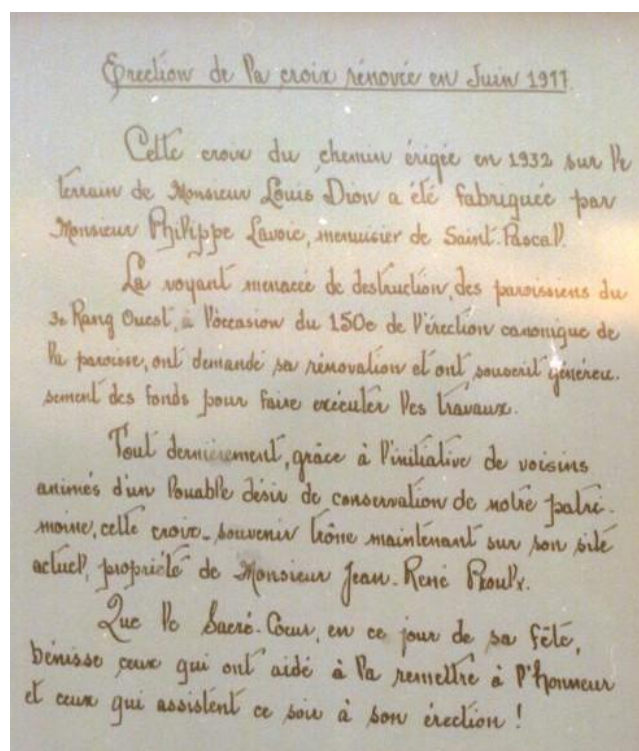 Érection de la croix rénovée en Juin 1977
Cette croix du chemin érigée en 1932 sur le
terrain de Monsieur Louis Dion a été fabriquée par
Monsieur Philippe Lavoie, menuisier de Saint-Pascal.
La voyant menacée de destruction, des paroissiens du
3e Rang Ouest, à l'occasion du 150e de l'érection canonique de
la paroisse, ont demandé sa rénovation et ont souscrit généreu-
sement des fonds pour faire exécuter les travaux.
Tout dernièrement, grâce à l'initiative de voisins
animés d'un louable désir de conservation de notre patri-
moine, cette croix-souvenir trône maintenant sur son site
actuel, propriété de Monsieur Jean-René Proulx.
Que le Sacré-Coeur, en ce jour de sa fête,
bénisse ceux qui ont aidé à la remettre à l'honneur
et ceux qui assistent ce soir à son érection !